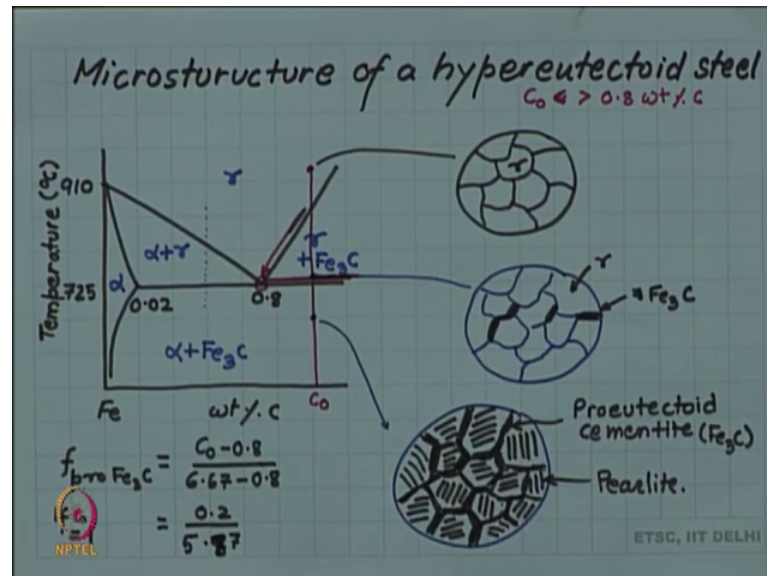 Microsturucture of a hypereutectoid steel
C₀ > 0.8 wt % C
Temperature (°C)
910
725
γ
α+γ
α
γ
+Fe₃C
0.02
0.8
α+Fe₃C
Fe
wt % C
C₀
γ
γ
Fe₃C
Proeutectoid
cementite (Fe₃C)
Pearlite.
f pro Fe₃C = C₀-0.8
6.67-0.8
= 0.2
5.87
NPTEL
ETSC, IIT DELHI